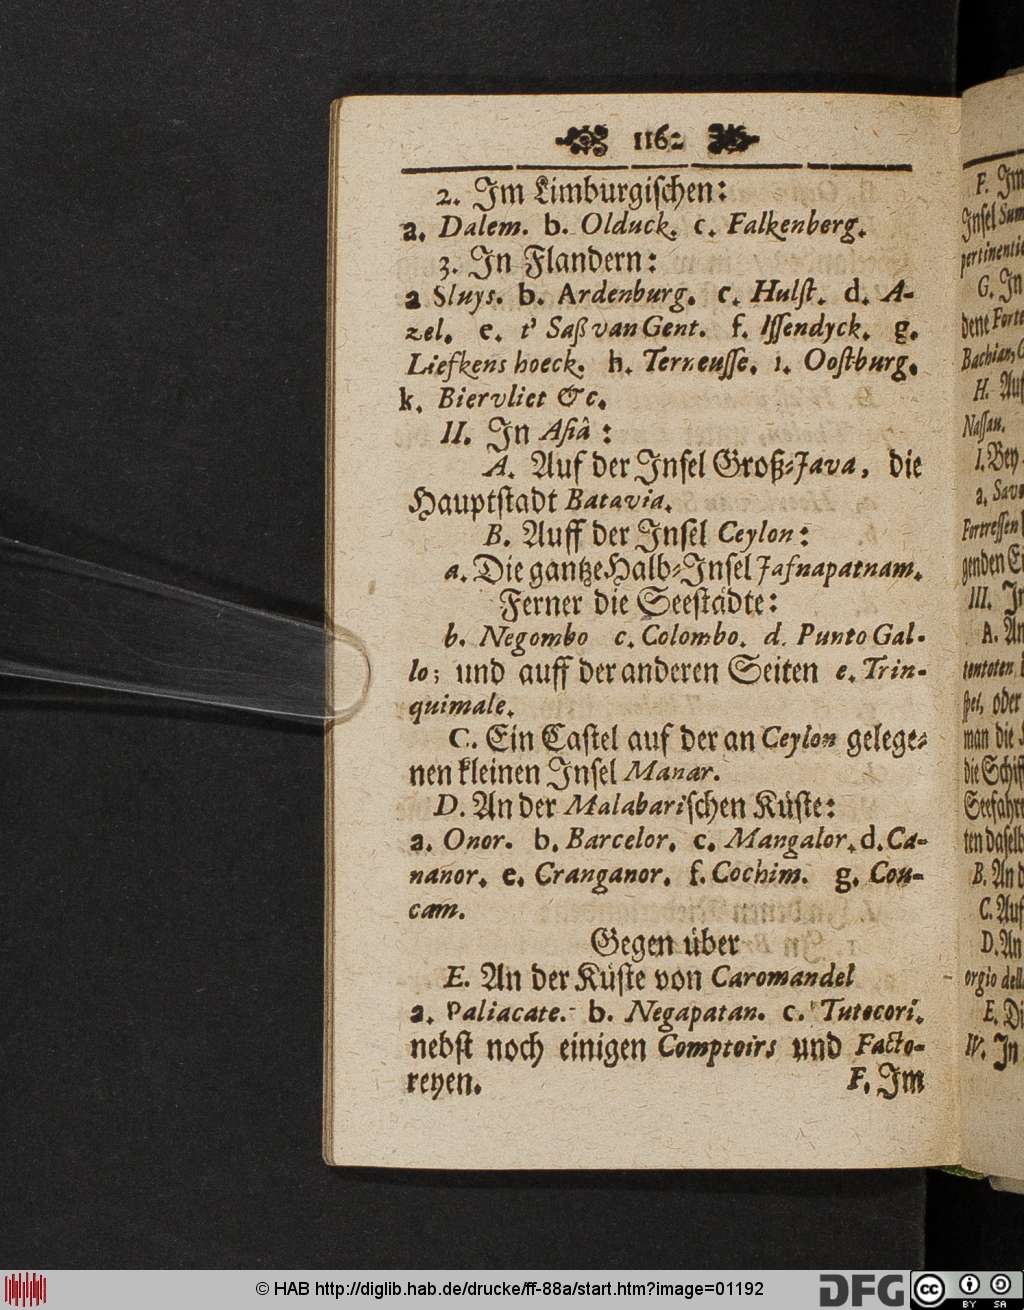 1162
2. Im Limburgischen:
a. Dalem. b. Olduck. c. Falkenberg.
3. In Flandern:
a Sluys. b. Ardenburg. c. Hulst. d. A-
zel. e. t' Saß van Gent. f. Issendyck. g.
Liefkens hoeck. h. Terneusse. i. Oostburg.
k. Biervliet &c.
II. In Asiâ:
A. Auf der Insel Groß-Java, die
Hauptstadt Batavia.
B. Auff der Insel Ceylon:
a. Die gantze Halb-Insel Jafnapatnam.
Ferner die Seestädte:
b. Negombo c. Colombo. d. Punto Gal-
lo; und auff der anderen Seiten e. Trin-
quimale.
C. Ein Castel auf der an Ceylon gelege-
nen kleinen Insel Manar.
D. An der Malabarischen Küste:
a. Onor. b. Barcelor. c. Mangalor. d. Ca-
nanor. e. Cranganor. f. Cochim. g. Cou-
cam.
Gegen über
E. An der Küste von Caromandel
a. Paliacate. b. Negapatan. c. Tutocori.
nebst noch einigen Comptoirs und Facto-
reyen.
F. Im
F. Im
Insel
G. In
dene
H. Auf
Nassau.
I. Bey
a.
III. In
A. An
oder
man die
B. An
C. Auf
D. An
E. Di
IV. In
© HAB http://diglib.hab.de/drucke/ff-88a/start.htm?image=01192
DFG
cc
BY SA